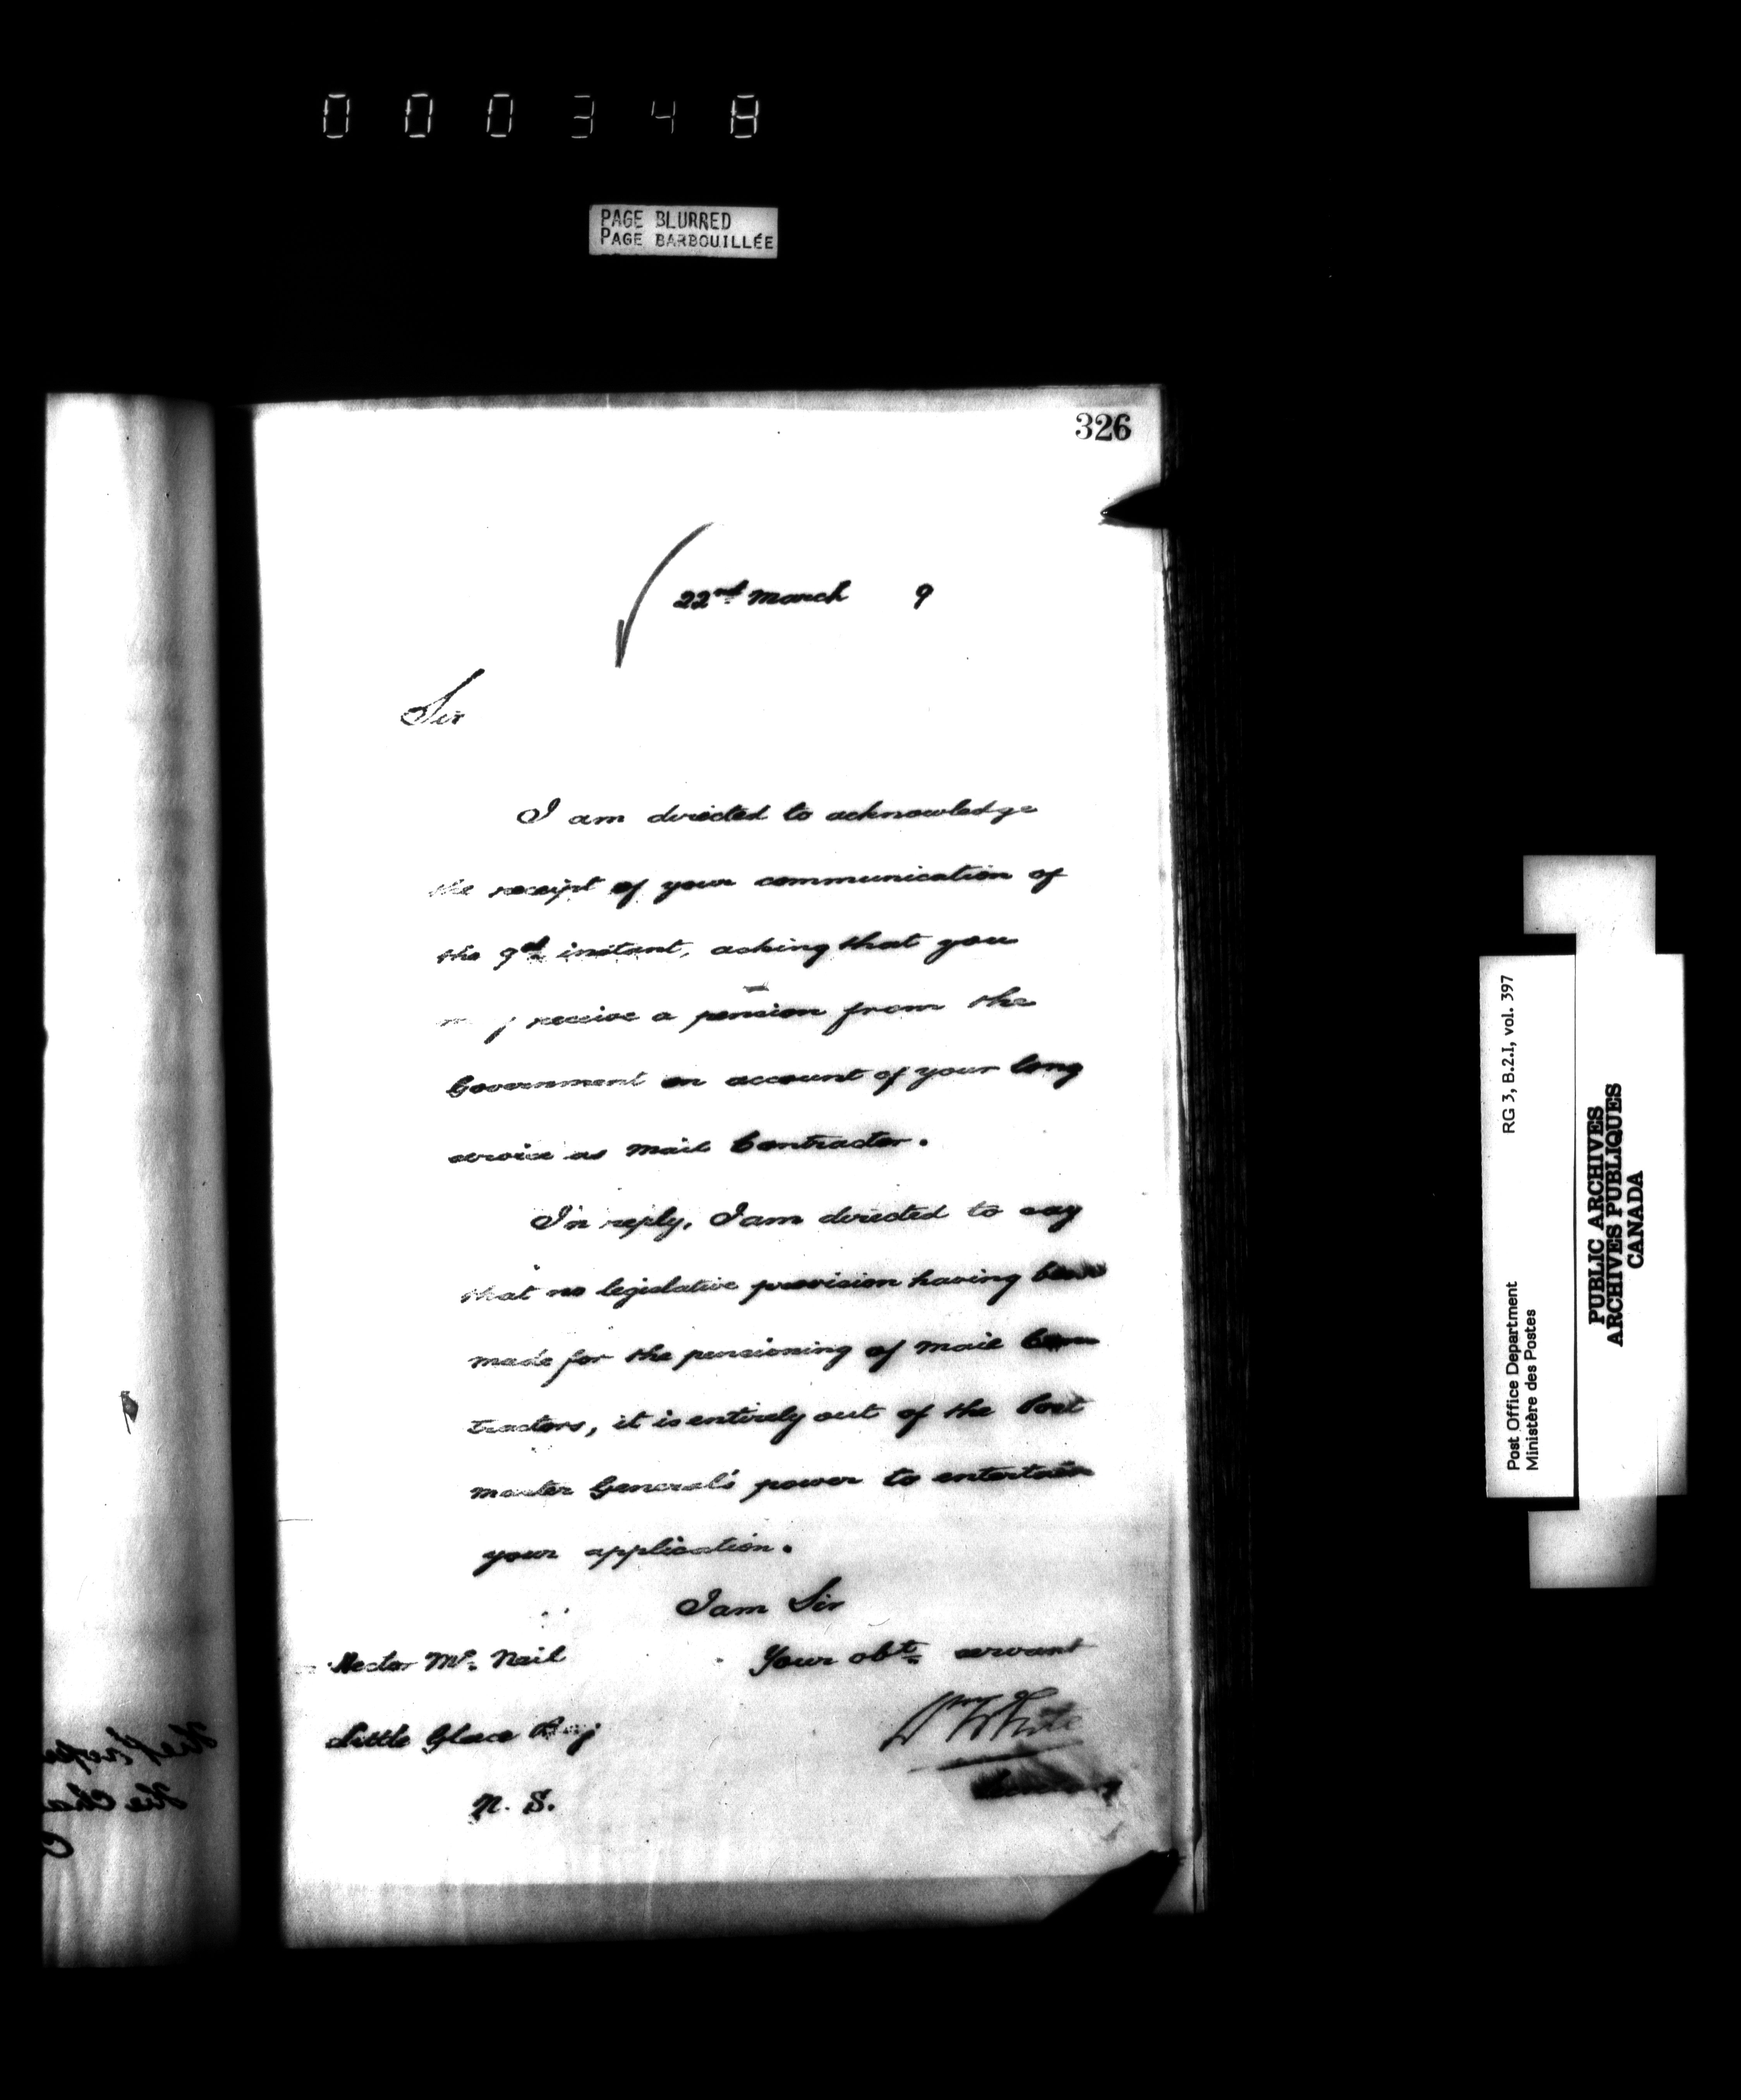 000348
PAGE BLURRED
PAGE BARBOUILLÉE
326
22nd March 9
Sir
I am directed to acknowledge
the receipt of your communication of
the 9th instant, asking that you
may receive a pension from the
Government on account of your long
service as Mail Contractor.
In reply, I am directed to say
that no legislative provision having been
made for the pensioning of Mail Con
tractors, it is entirely out of the Post
master General's power to entertain
your application.
I am Sir
Your obt. servant
Wm White
Hector Mc. Neil
Little Glace Bay
N. S.
RG 3, B.2.I, vol. 397
Post Office Department
Ministère des Postes
PUBLIC ARCHIVES
ARCHIVES PUBLIQUES
CANADA